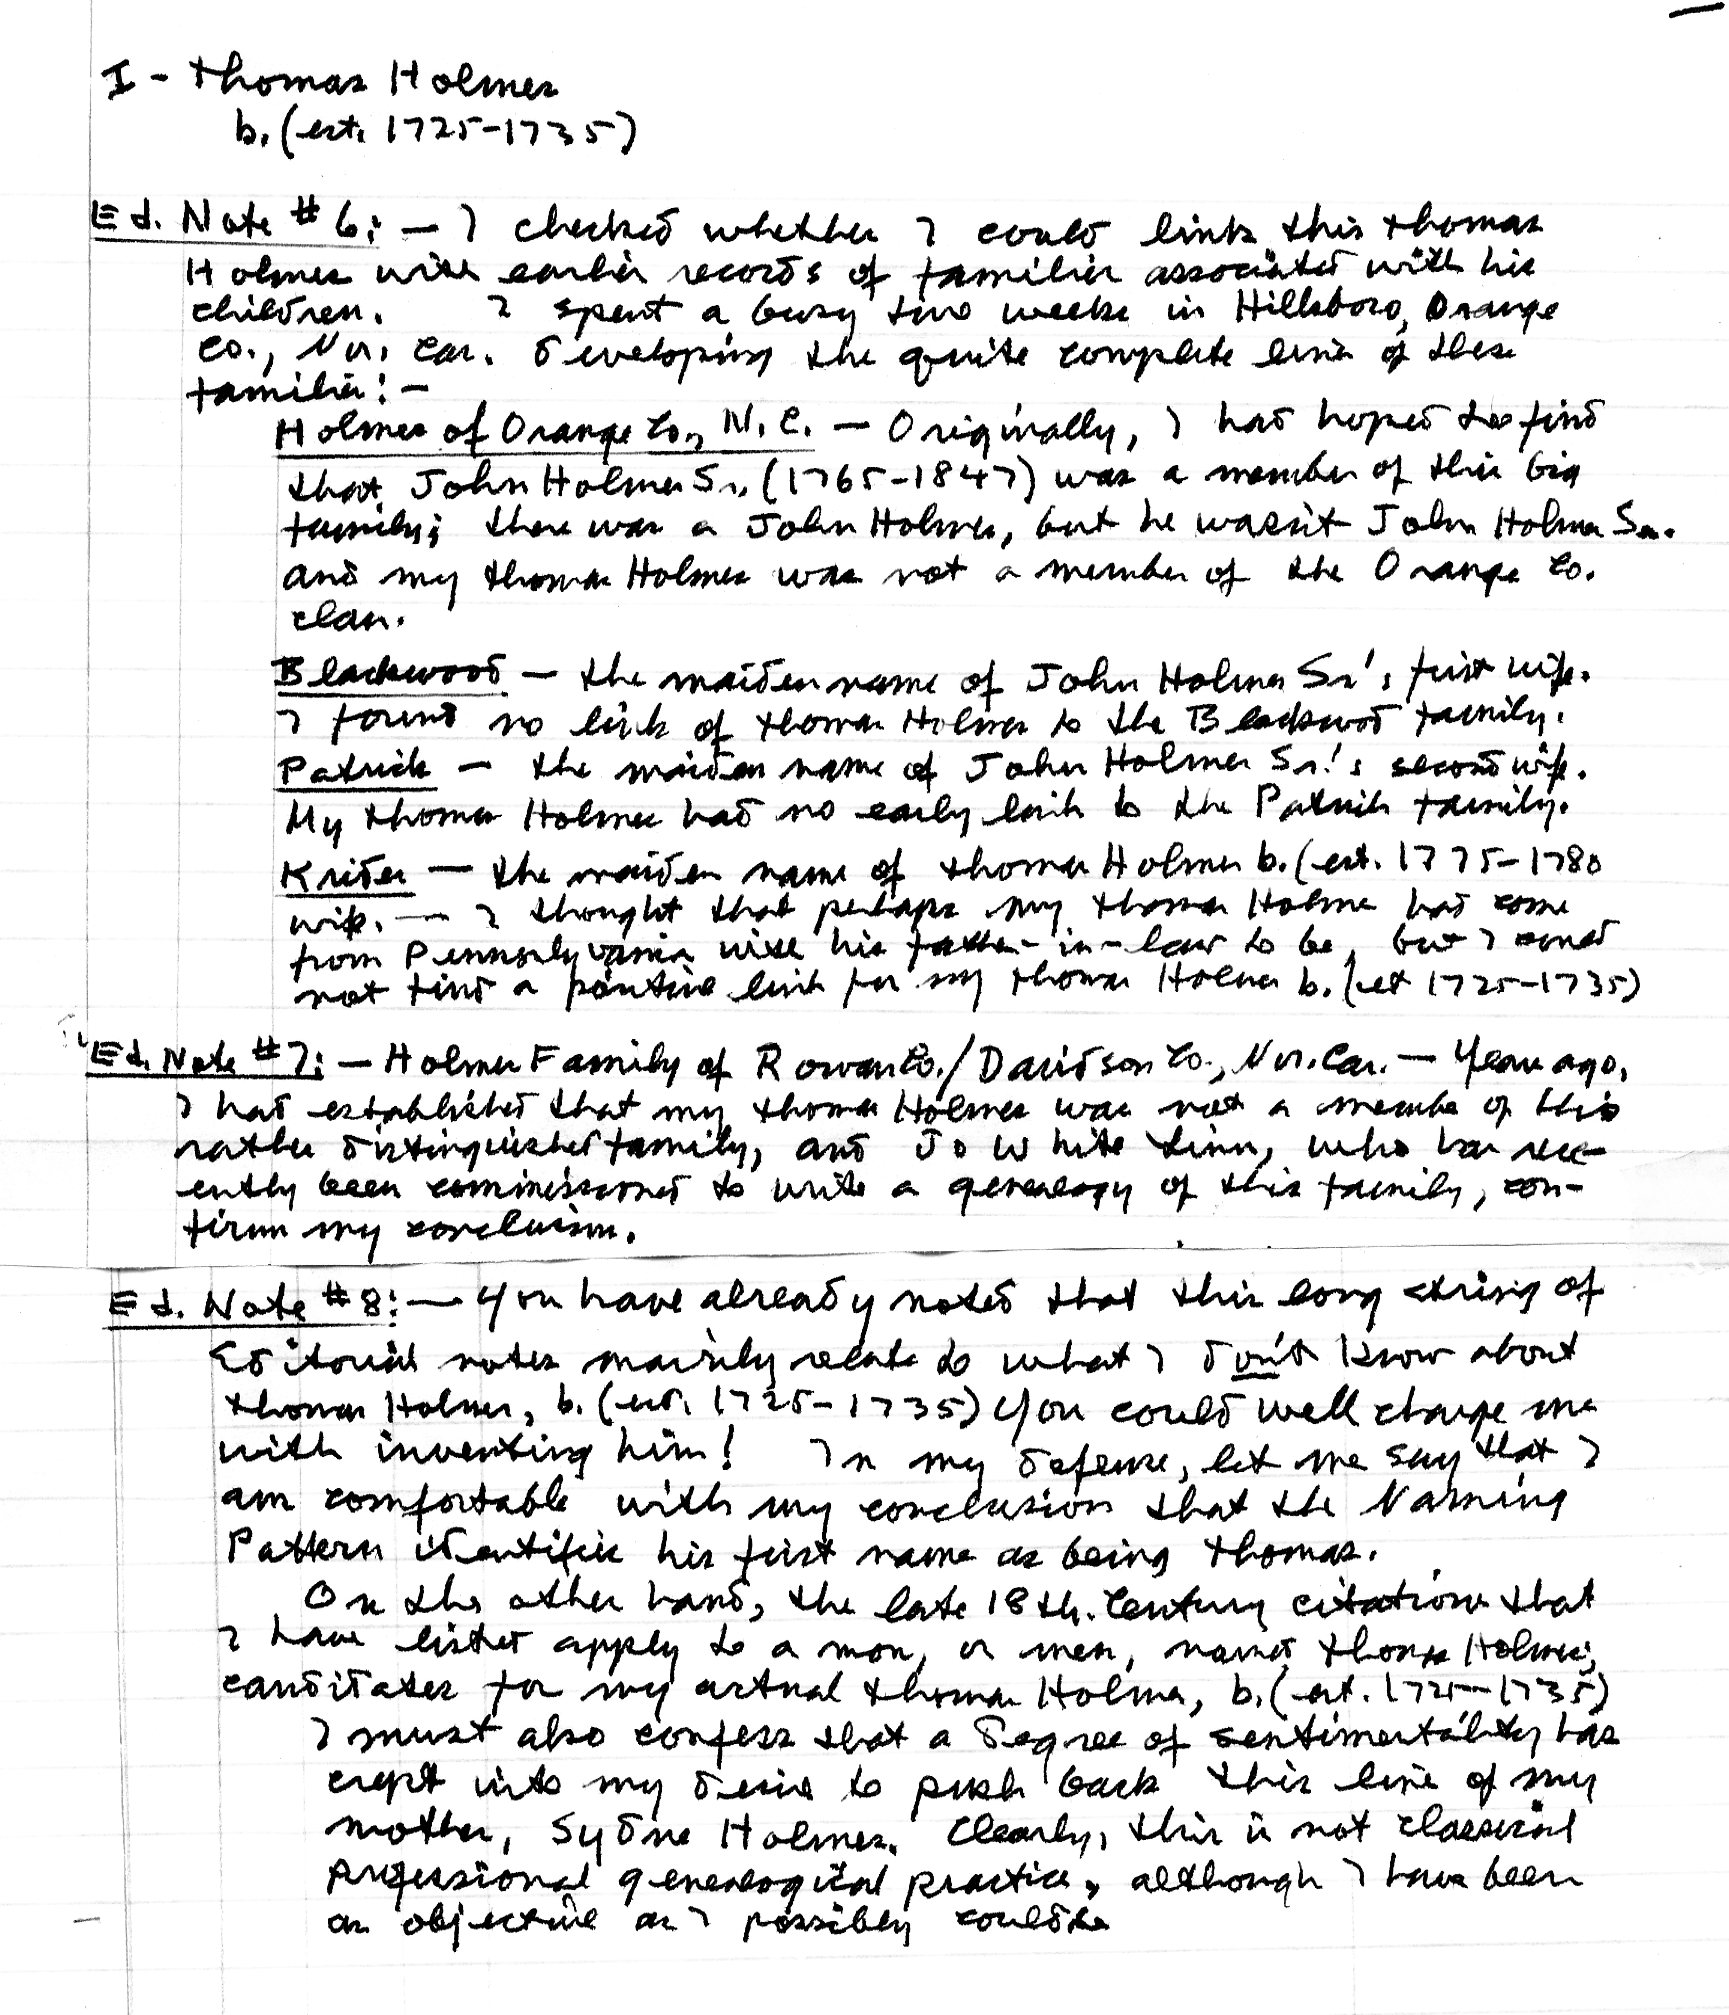 I - Thomas Holmes
b. (est. 1725-1735)
Ed. Note #6: — I checked whether I could link this Thomas
Holmes with earlier records of families associated with his
children. I spent a busy two weeks in Hillsboro, Orange
Co., No. Car. developing the quite complete lines of these
families: —
Holmes of Orange Co., N.C. — Originally, I had hoped to find
that John Holmes Sr. (1765-1847) was a member of this big
family; there was a John Holmes, but he wasn't John Holmes Sr.
and my Thomas Holmes was not a member of the Orange Co.
clan.
Blackwood — the maiden name of John Holmes Sr.'s first wife.
I found no link of Thomas Holmes to the Blackwood family.
Patrick — the maiden name of John Holmes Sr.'s second wife.
My Thomas Holmes had no early link to the Patrick family.
Krider — the maiden name of Thomas Holmes b. (est. 1775-1780
wife. — I thought that perhaps my Thomas Holmes had come
from Pennsylvania with his father-in-law to be, but I could
not find a positive link for my Thomas Holmes b. (est 1725-1735)
Ed. Note #7: — Holmes Family of Rowan Co./Davidson Co., No. Car. — Years ago,
I had established that my Thomas Holmes was not a member of this
rather distinguished family, and Jo White Linn, who has rec-
ently been commissioned to write a genealogy of this family, con-
firm my conclusion.
Ed. Note #8: — You have already noted that this long string of
Editorial notes mainly relate to what I don't know about
Thomas Holmes, b. (est. 1725-1735) You could well charge me
with inventing him! In my defense, let me say that I
am comfortable with my conclusion that the Naming
Pattern identifies his first name as being Thomas.
On the other hand, the late 18th. Century citations that
I have listed apply to a man, or men, named Thomas Holmes;
canditates for my actual Thomas Holmes, b. (est. 1725-1735)
I must also confess that a degree of sentimentality has
crept into my desire to push back this line of my
mother, Sydne Holmes. Clearly, this is not classical
professional genealogical practice, although I have been
as objective as I possibly could be